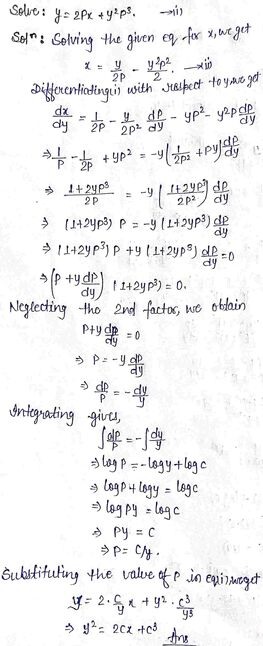 Solve: y = 2Px + y²P³. →(i)
Solⁿ: Solving the given eq for x, we get
x = y/2P - y²P²/2. →(ii)
Differentiating(ii) with respect to y, we get
dx/dy = 1/2P - y/2P² dP/dy - yP² - y²P dP/dy
⇒ 1/P - 1/2P + yP² = -y(1/2P² + Py) dP/dy
⇒ 1+2yP³/2P = -y(1+2yP³/2P²) dP/dy
⇒ (1+2yP³) P = -y(1+2yP³) dP/dy
⇒ (1+2yP³) P + y(1+2yP³) dP/dy = 0
⇒ (P + y dP/dy) (1+2yP³) = 0.
Neglecting the 2nd factor, we obtain
P+y dP/dy = 0
⇒ P = -y dP/dy
⇒ dP/P = -dy/y
Integrating gives,
∫dP/P = -∫dy/y
⇒ log P = -log y + log c
⇒ log P + log y = log c
⇒ log Py = log c
⇒ Py = c
⇒ P = c/y.
Substituting the value of P in eq(i), we get
y = 2·c/y x + y²·c³/y³
⇒ y² = 2cx + c³
Ans